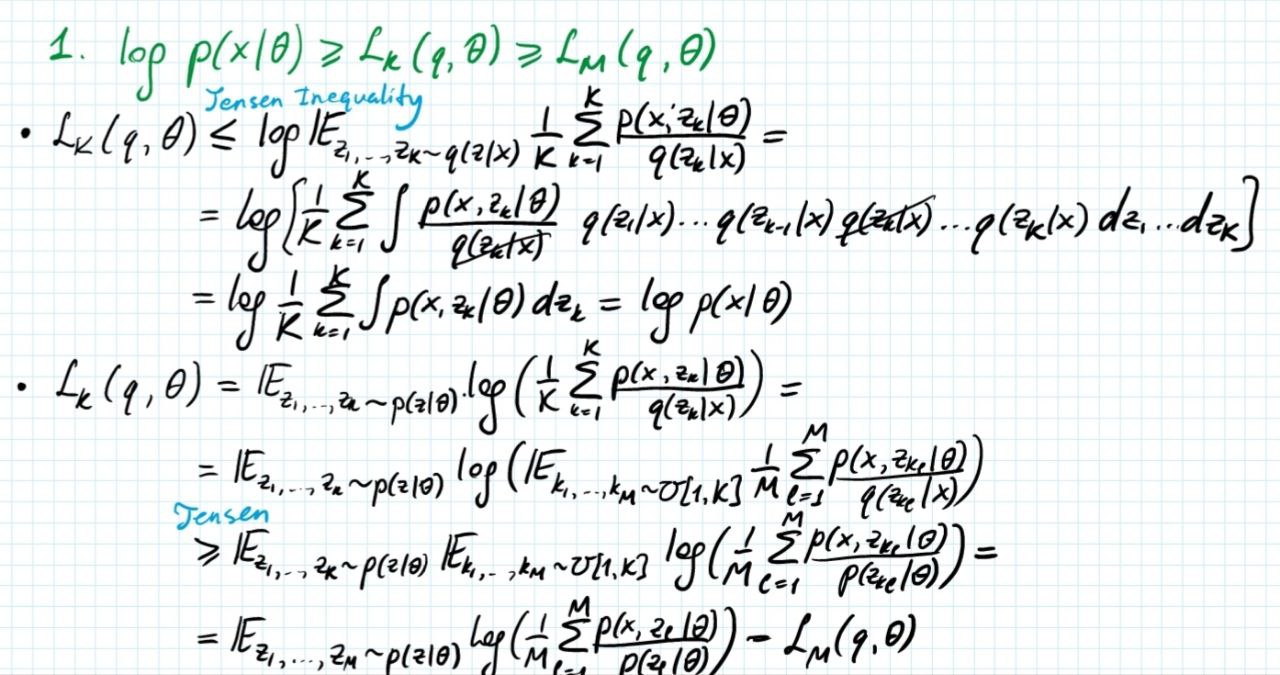 1. log p(x|θ) ≥ ℒ_K(q, θ) ≥ ℒ_M(q, θ)
Jensen Inequality
• ℒ_K(q, θ) ≤ log 𝔼_{z_1,...,z_K∼q(z|x)} 1/K ∑_{k=1}^{K} p(x, z_k|θ)/q(z_k|x) =
= log[1/K ∑_{k=1}^{K} ∫ p(x, z_k|θ)/q(z_k|x) q(z_1|x)...q(z_{k-1}|x) q(z_k|x)...q(z_K|x) dz_1...dz_K]
= log 1/K ∑_{k=1}^{K} ∫ p(x, z_k|θ) dz_k = log p(x|θ)
• ℒ_K(q, θ) = 𝔼_{z_1,...,z_K∼p(z|θ)} log(1/K ∑_{k=1}^{K} p(x, z_k|θ)/q(z_k|x)) =
= 𝔼_{z_1,...,z_K∼p(z|θ)} log(𝔼_{k_1,...,k_M∼U[1,K]} 1/M ∑_{ℓ=1}^{M} p(x, z_{k_ℓ}|θ)/q(z_{k_ℓ}|x))
Jensen
≥ 𝔼_{z_1,...,z_K∼p(z|θ)} 𝔼_{k_1,...,k_M∼U[1,K]} log(1/M ∑_{ℓ=1}^{M} p(x, z_{k_ℓ}|θ)/p(z_{k_ℓ}|θ)) =
= 𝔼_{z_1,...,z_M∼p(z|θ)} log(1/M ∑_{ℓ=1}^{M} p(x, z_ℓ|θ)/p(z_ℓ|θ)) = ℒ_M(q, θ)